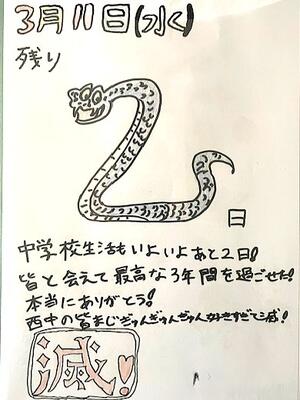 3月11日(水)
残り
2日
中学校生活もいよいよあと2日!
皆と会えて最高な3年間を過ごせた!
本当にありがとう!
西中の皆まじぎゅんぎゅんぎゅん好きすぎて滅!
滅!